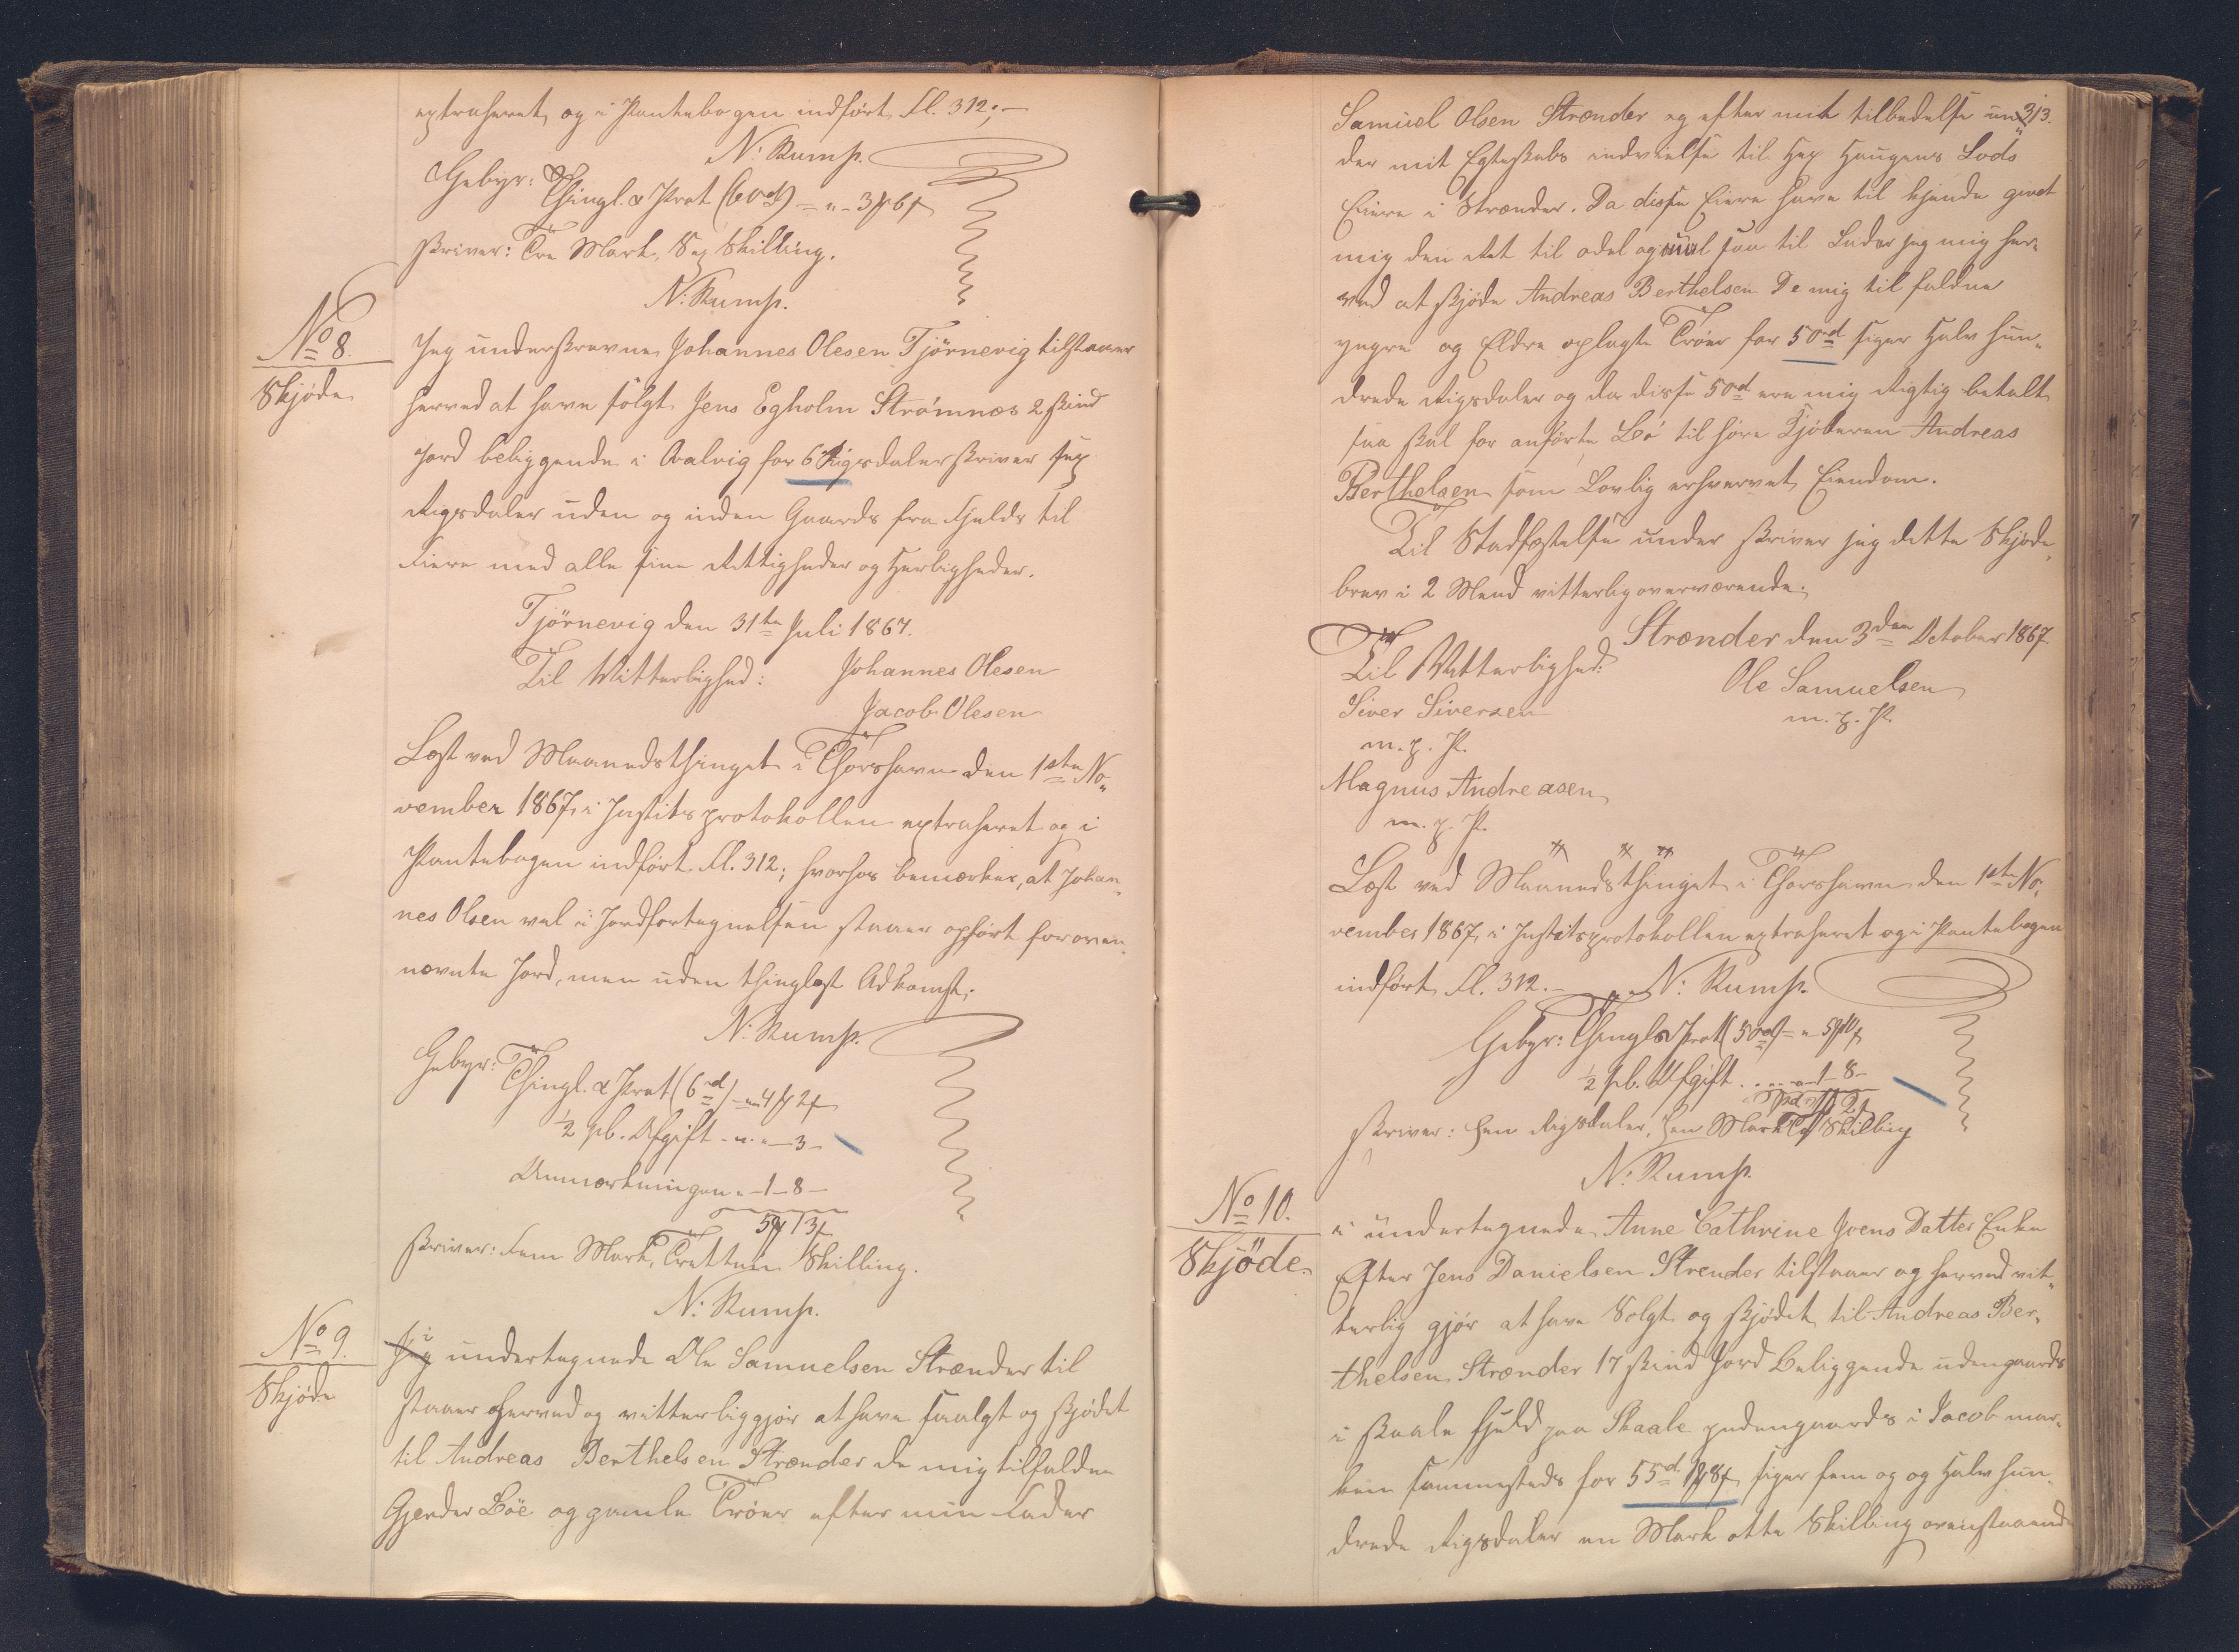 extraheret og i Pantebogen indført fl. 312;—
N: Rump.
Gebyr: Thingl. & Prot (60rd) = " - 3 ₻ 6 ß
skriver: Tre Mark, Sex Skilling.
N: Rump.
No 8.
Skjøde
Jeg underskrevne Johannes Olesen Tjörnevig tilstaaer
herved at have solgt Jens Egholm Strömnæs 2 skind
Jord beliggende i Qvalvig for 6 Rigsdaler skriver sex
Rigsdaler uden og inden Gaards fra Fjelds til
Fiære med alle sine Rettigheder og Herligheder.
Tjörnevig den 31te Juli 1867.
Til Vitterlighed: Johannes Olesen
Jacob Olesen
Læst ved Maanedsthinget i Thorshavn den 1ste No„
vember 1867, i Justitsprotokollen extraheret og i
Pantebogen indført fl. 312; hvorhos bemærkes, at Johan„
nes Olsen vel i Jordfortegnelsen staaer opført for oven„
nævnte Jord, men uden thinglæst Adkomst.
N: Rump.
Gebyr: Thingl. & Prot (6rd) - " - 4 ₻ 2 ß
½ pC. Afgift - " - " - 3 -
Anmærkningen " - 1 - 8 -
5 ₻ 13 ß
skriver: Fem Mark, Tretten Skilling.
N: Rump.
No 9.
Skjøde
Jeg i undertegnede Ole Samuelsen Strænder til
staaer herved og vitterliggjör at have saalgt og skjödet
til Andreas Berthelsen Strænder de mig tilfaldne
Gjerder Böe og gamle Tröer efter min Fader
313.
Samuel Olsen Strænder og efter mit tilbedelse un„
der mit Egteskabs indvielse til Hex Haugens Lods
Eiere i Strænder. Da disse Eiere have til kjende givet
mig den Ret til odel og saa til Lader jeg mig her„
ved at skjöde Andreas Berthelsen De mig til faldne
yngre og Eldre oplagte Tröer for 50rd siger Halv hun„
drede Rigsdaler og da disse 50rd ere mig Rigtig betalt
saa skal for anförte Bö til höre Kjöberen Andreas
Berthelsen som Lovlig erhvervet Eiendom.
Til Stadfæstelse under skriver jeg dette Skjøde„
brev i 2 Mend vitterlig overværende.
Strænder den 3den October 1867.
Til Vitterlighed: Ole Samuelsen
Siver Siversen m. p. P.
m. p. P.
Magnus Andreasen
m. p. P.
Læst ved Maanedsthinget i Thorshavn den 1ste No„
vember 1867, i Justitsprotokollen extraheret og i Pantebogen
indført fl. 312.— N: Rump.
Gebyr: Thingl & Prot (50rd) = " 5 ₻ 10 ß
½ pC. Afgift . . . . " - 1 - 8 -
1rd 1 ₻ 2 ß
skriver: Een Rigsdaler, Een Mark To Skilling
N: Rump.
No 10.
Skjöde.
i undertegnede Anne Cathrine Joens Datter Enke
Efter Jens Danielsen Strender tilstaaer og herved vit„
terlig gjör at have Solgt og skjödet til Andreas Ber„
thelsen Strænder 17 skind Jord Beliggende udengaards
i skaale fjeld paa Skaale indengaards i Jacob mar„
ken sammesteds for 55rd 1 ₻ 8 ß siger fem og og Halv hun„
drede Rigsdaler en Mark otte Skilling ovenstaaende